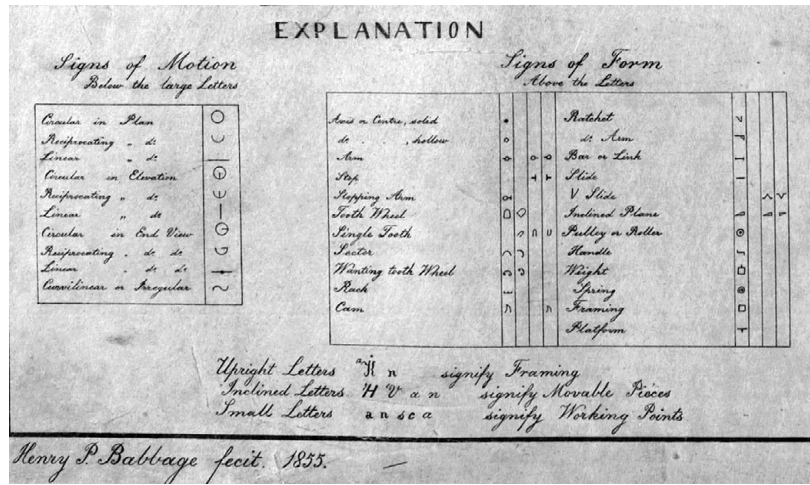 EXPLANATION
Signs of Motion
Below the large Letters
Circular in Plan
Reciprocating „ do
Linear „ do
Circular in Elevation
Reciprocating „ do
Linear „ do
Circular in End View
Reciprocating „ do do
Linear „ do do
Curvilinear or Irregular
Signs of Form
Above the Letters
Axis or Centre, solid
do . , hollow
Arm
Stop
Stopping Arm
Tooth Wheel
Single Tooth
Sector
Wanting tooth Wheel
Rack
Cam
Ratchet
do Arm
Bar or Link
Slide
V Slide
Inclined Plane
Pulley or Roller
Handle
Weight
Spring
Framing
Platform
Upright Letters a H n signify Framing
Inclined Letters H V a n signify Movable Pieces
Small Letters a n s c a signify Working Points
Henry P. Babbage fecit. 1855.